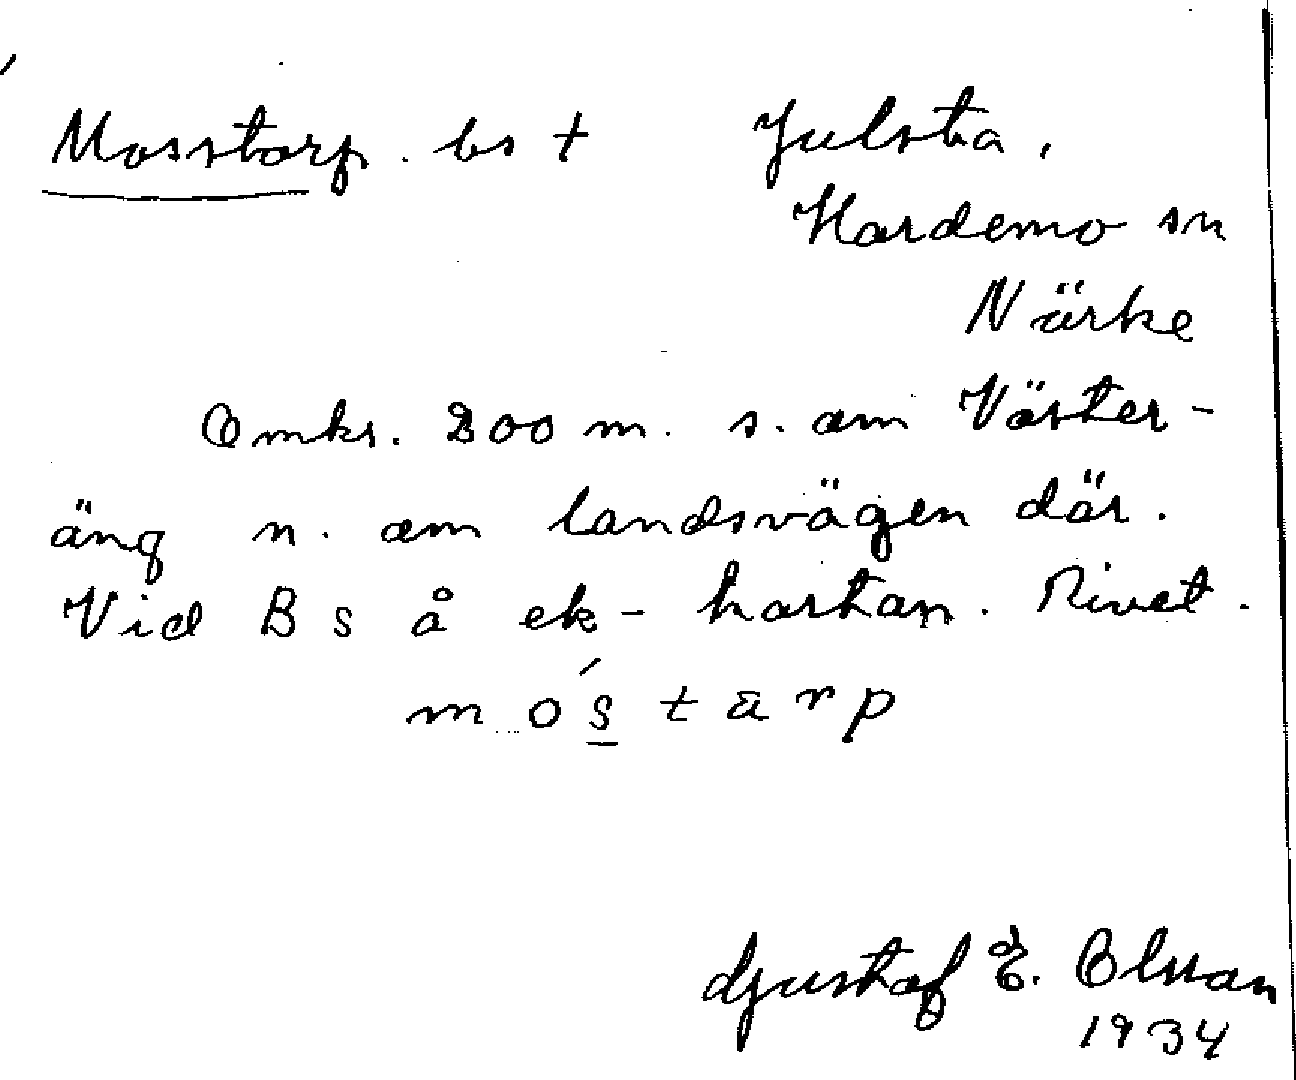 Mosstorp. bs † Julsta,
Hardemo sn
Närke
Omkr. 200 m. s. om Väster-
äng n. om landsvägen där.
Vid Bs å ek-kartan. Rivet.
móstarp
Gustaf E. Olsson
1934